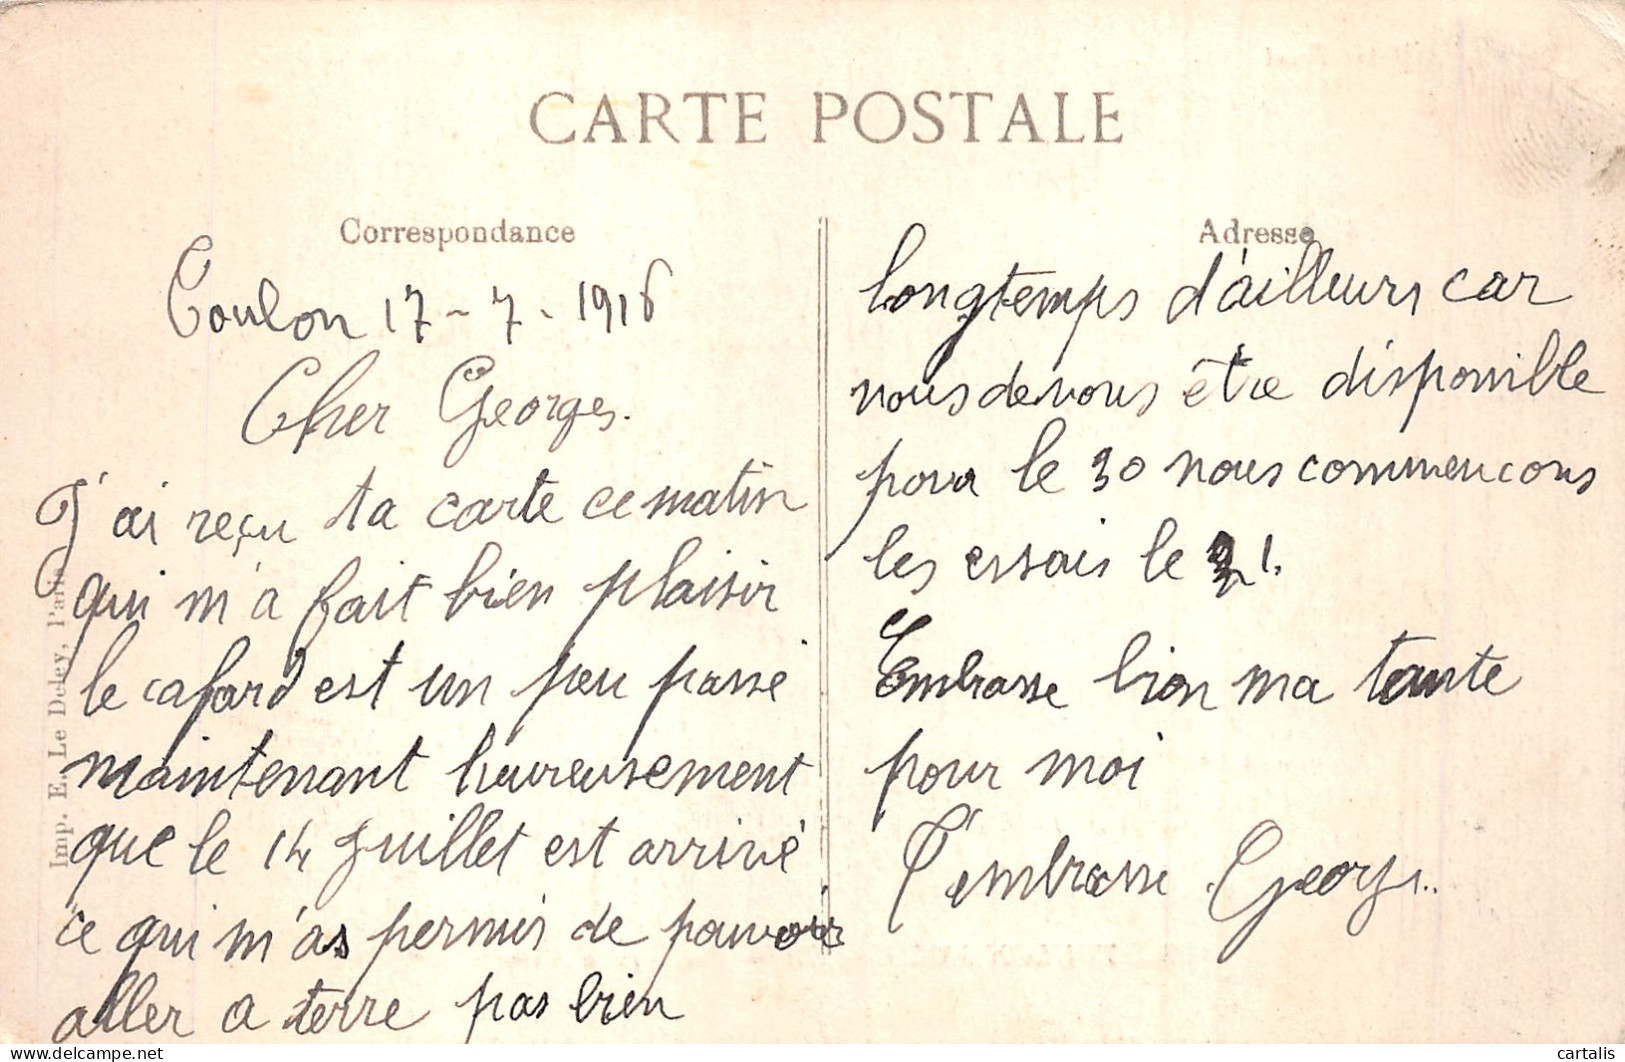 CARTE POSTALE
Correspondance
Toulon 17-7-1916
Cher Georges.
J'ai reçu ta carte ce matin
qui m'a fait bien plaisir
le cafard est un peu passé
maintenant heureusement
que le 14 Juillet est arrivé
ce qui m'as permis de pouvoir
aller a terre pas bien
Adresse
longtemps d'ailleurs car
nous devons être disponible
pour le 30 nous commencons
les essais le 21.
Embrasse bien ma tante
pour moi
T'embrasse Georges.
Imp. E. Le Deley, Paris
cartalis